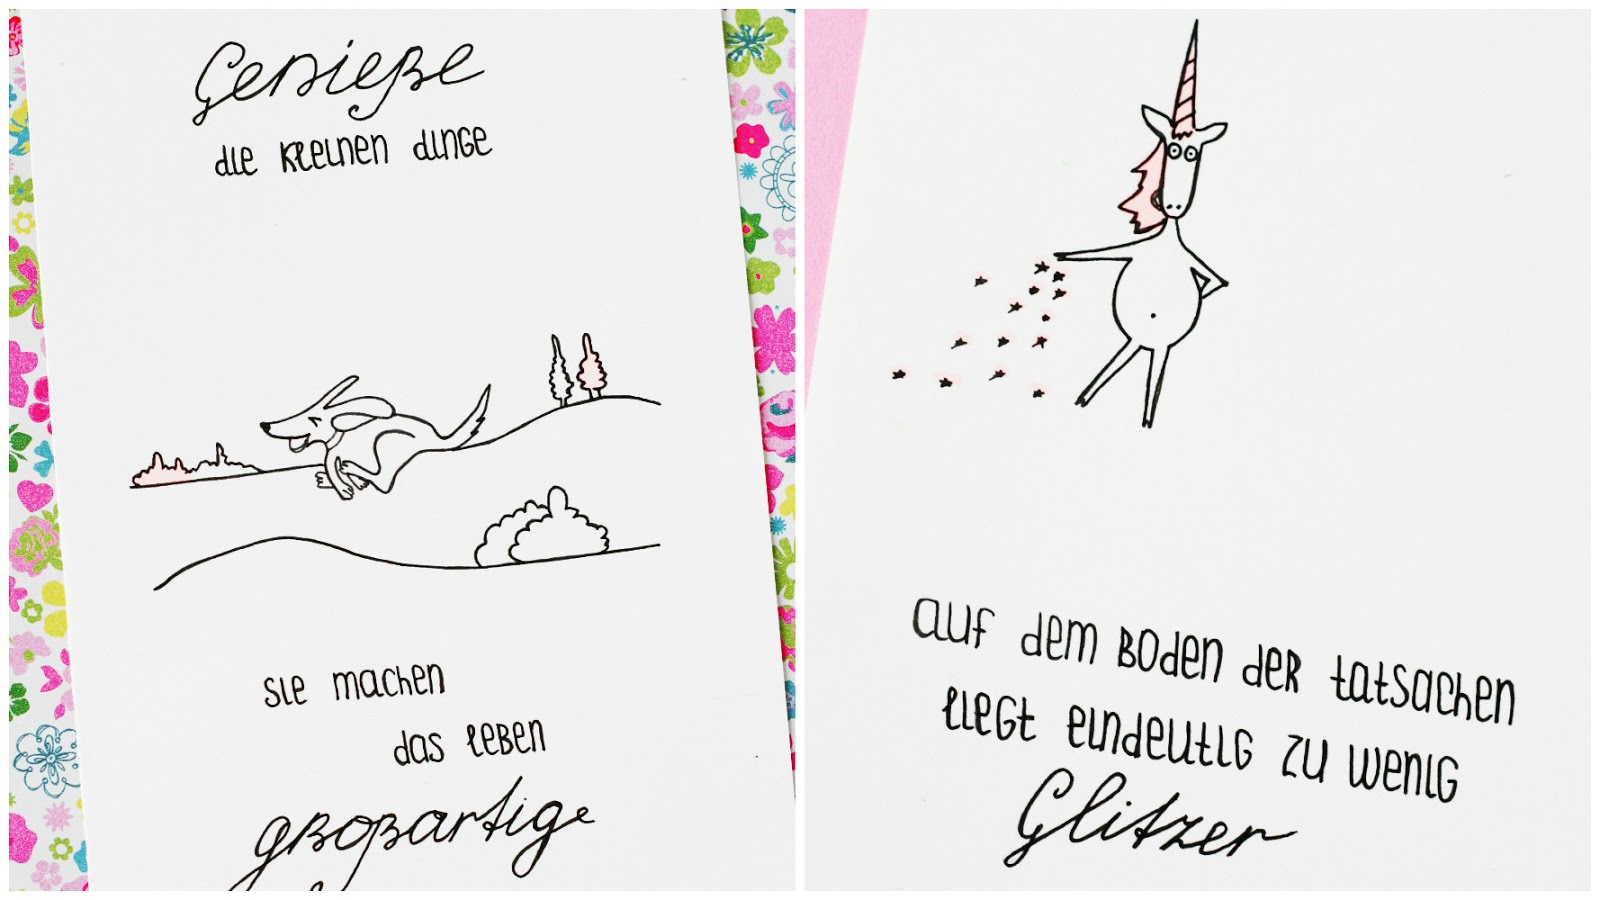 Genieße
die kleinen dinge
sie machen
das leben
großartige
auf dem Boden der tatsachen
liegt eindeutig zu wenig
Glitzer